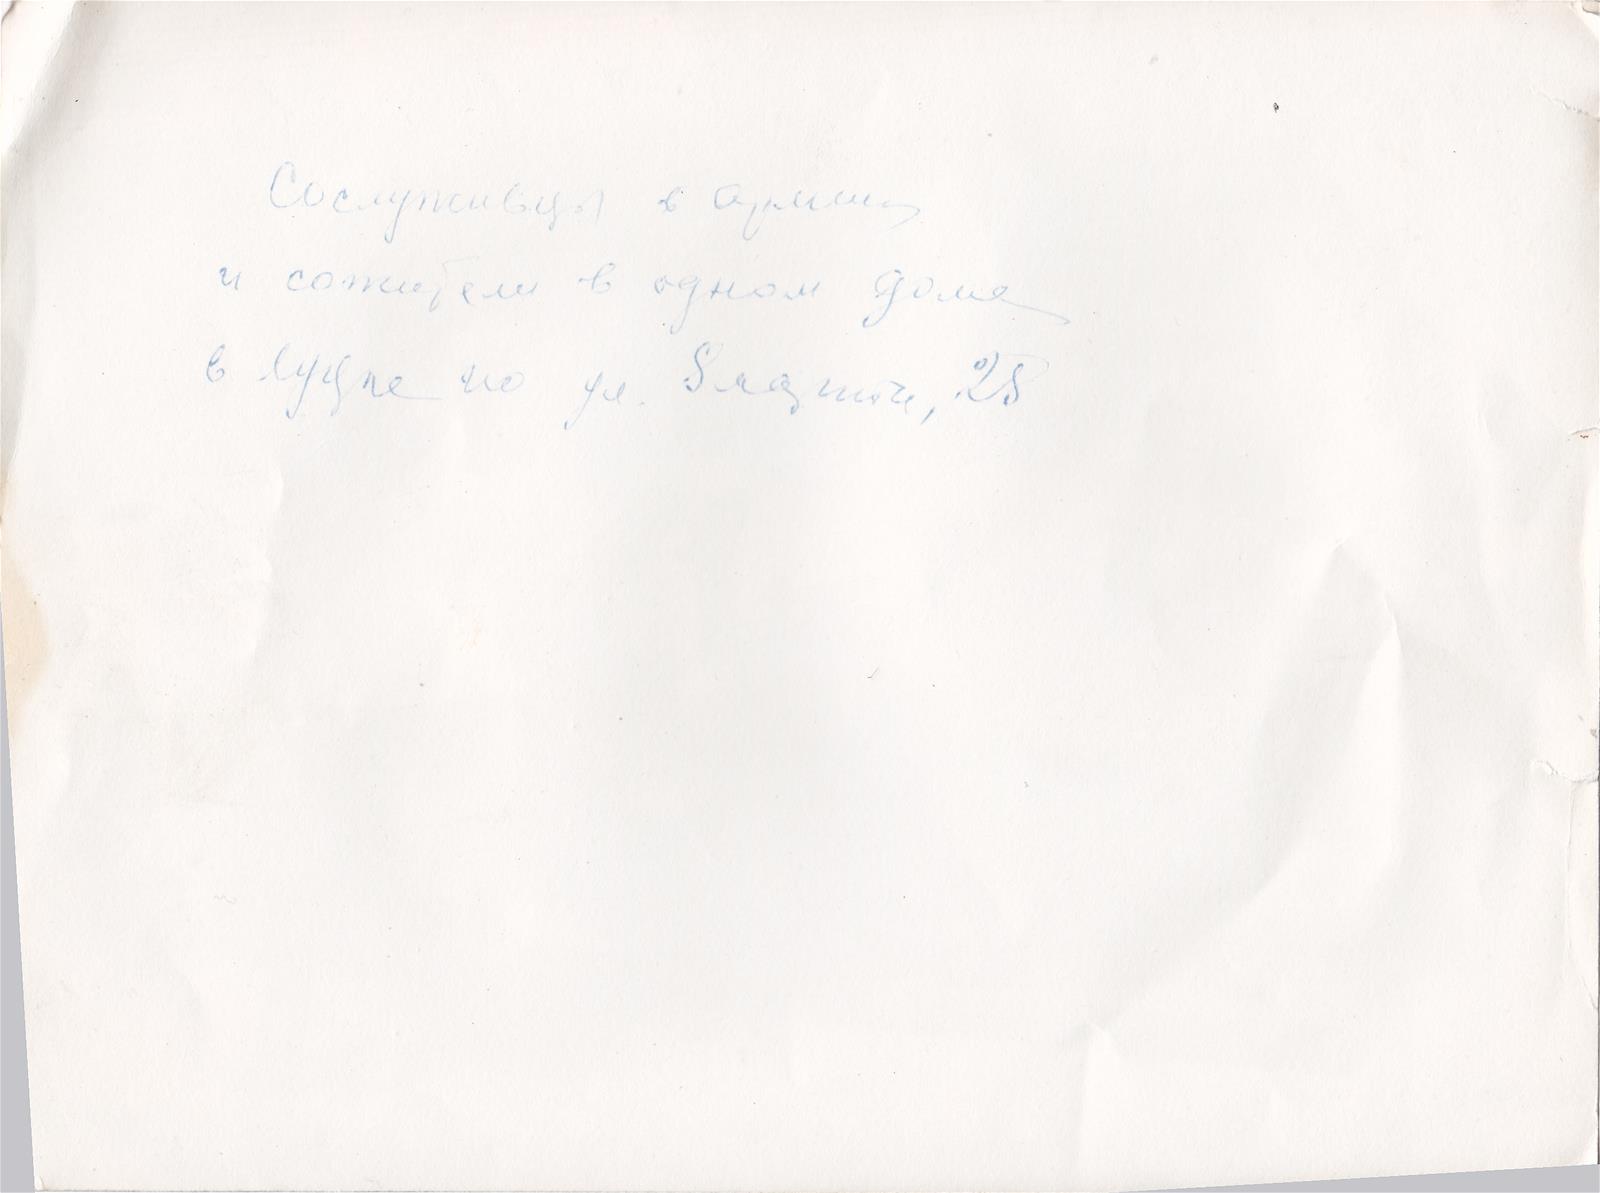 Сослуживцы в армии
и сожители в одном доме
в Луцке по ул. 25